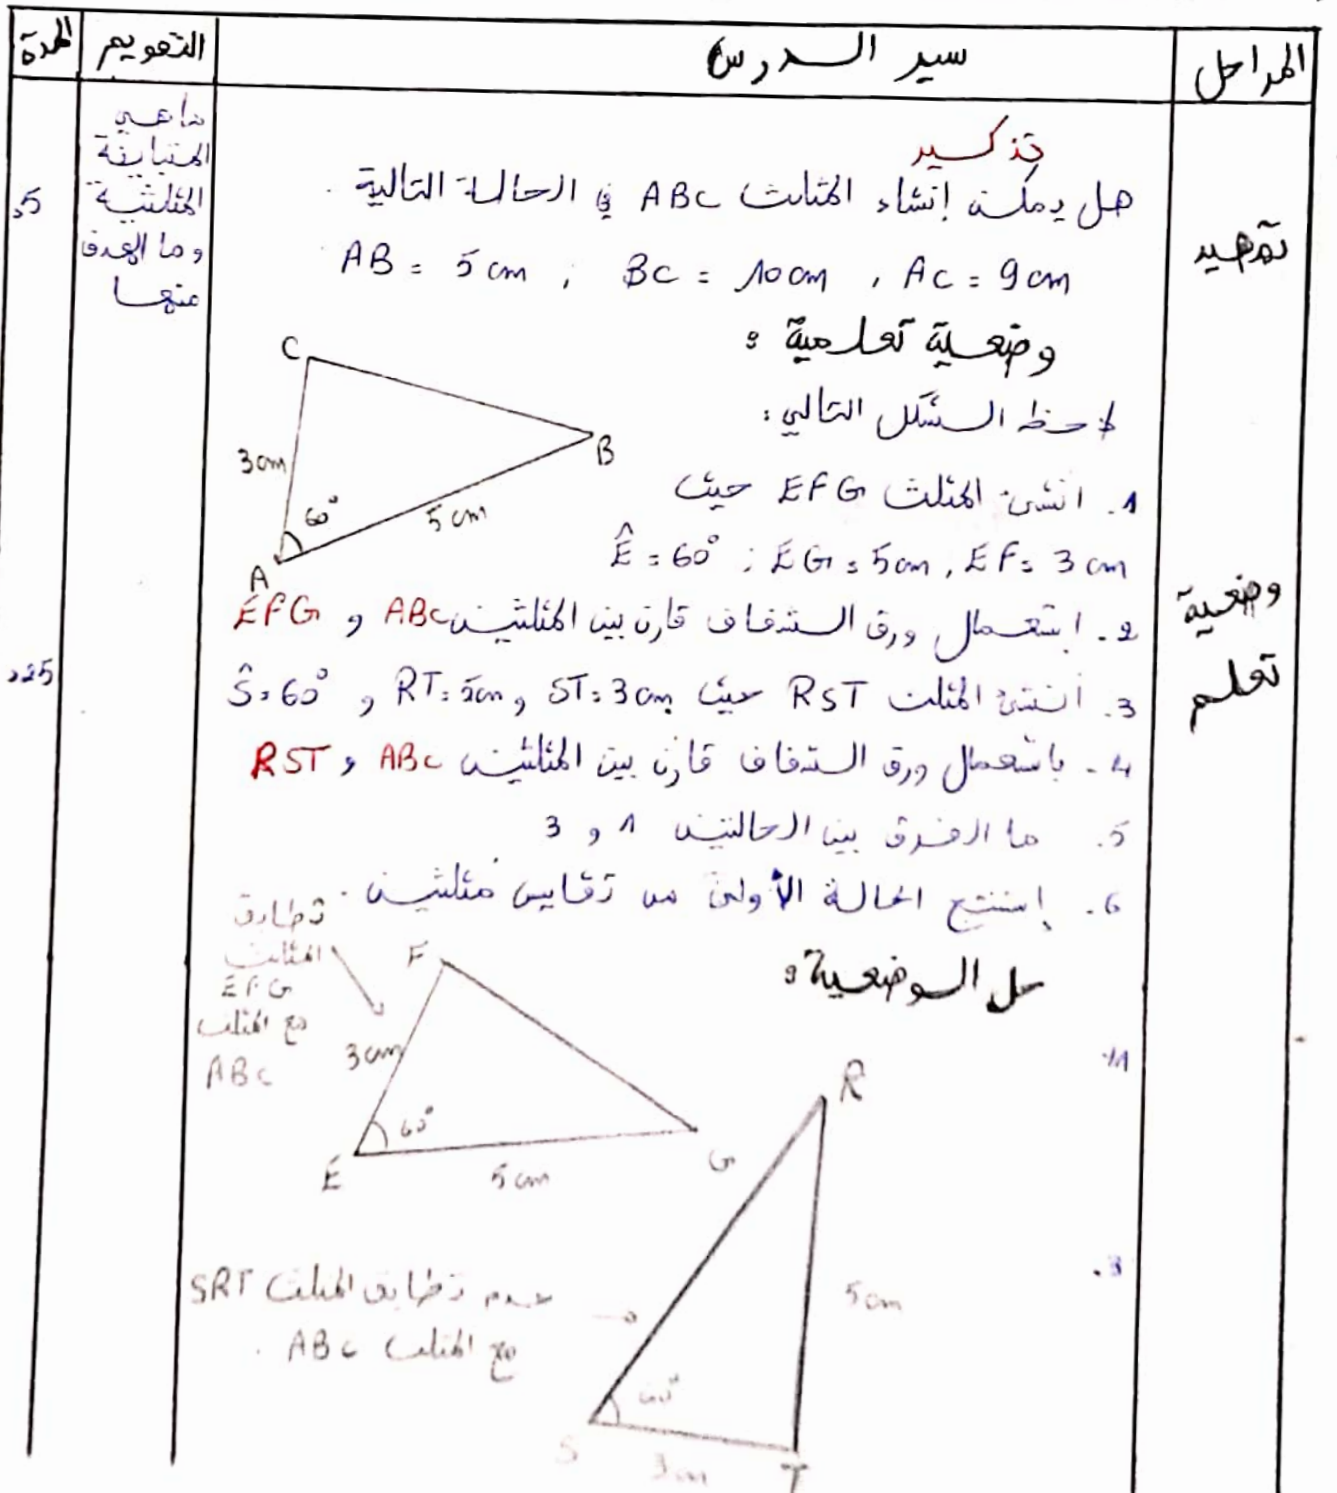 المراحل
سير الدرس
التقويم
المدة
تمهيد
تذكير
هل يمكن إنشاء المثلث ABC في الحالة التالية .
AB = 5 cm ; BC = 10 cm , AC = 9 cm
ما هي
المتباينة
المثلثية
وما الهدف
منها
وضعية تعلمية :
لاحظ الشكل التالي :
C
B
A
3 cm
60°
5 cm
وضعية
تعلم
1. انشئ المثلث EFG حيث
Ê = 60° ; EG = 5cm , EF = 3 cm
2. ابتعمال ورق الشفاف قارن بين المثلثين ABC و EFG
3. أنشئ المثلث RST حيث ST = 3 cm و RT = 5cm و Ŝ = 60°
4. باستعمال ورق الشفاف قارن بين المثلثين ABC و RST
5. ما الفرق بين الحالتين 1 و 3
6. إستنتج الحالة الأولى من تقايس مثلثين .
حل الوضعية :
تطابق
المثلث
EFG
مع المثلث
ABC
F
3 cm
60°
E
5 cm
G
R
5 cm
60°
S
3 cm
T
3.
عدم تطابق المثلث SRT
مع المثلث ABC .